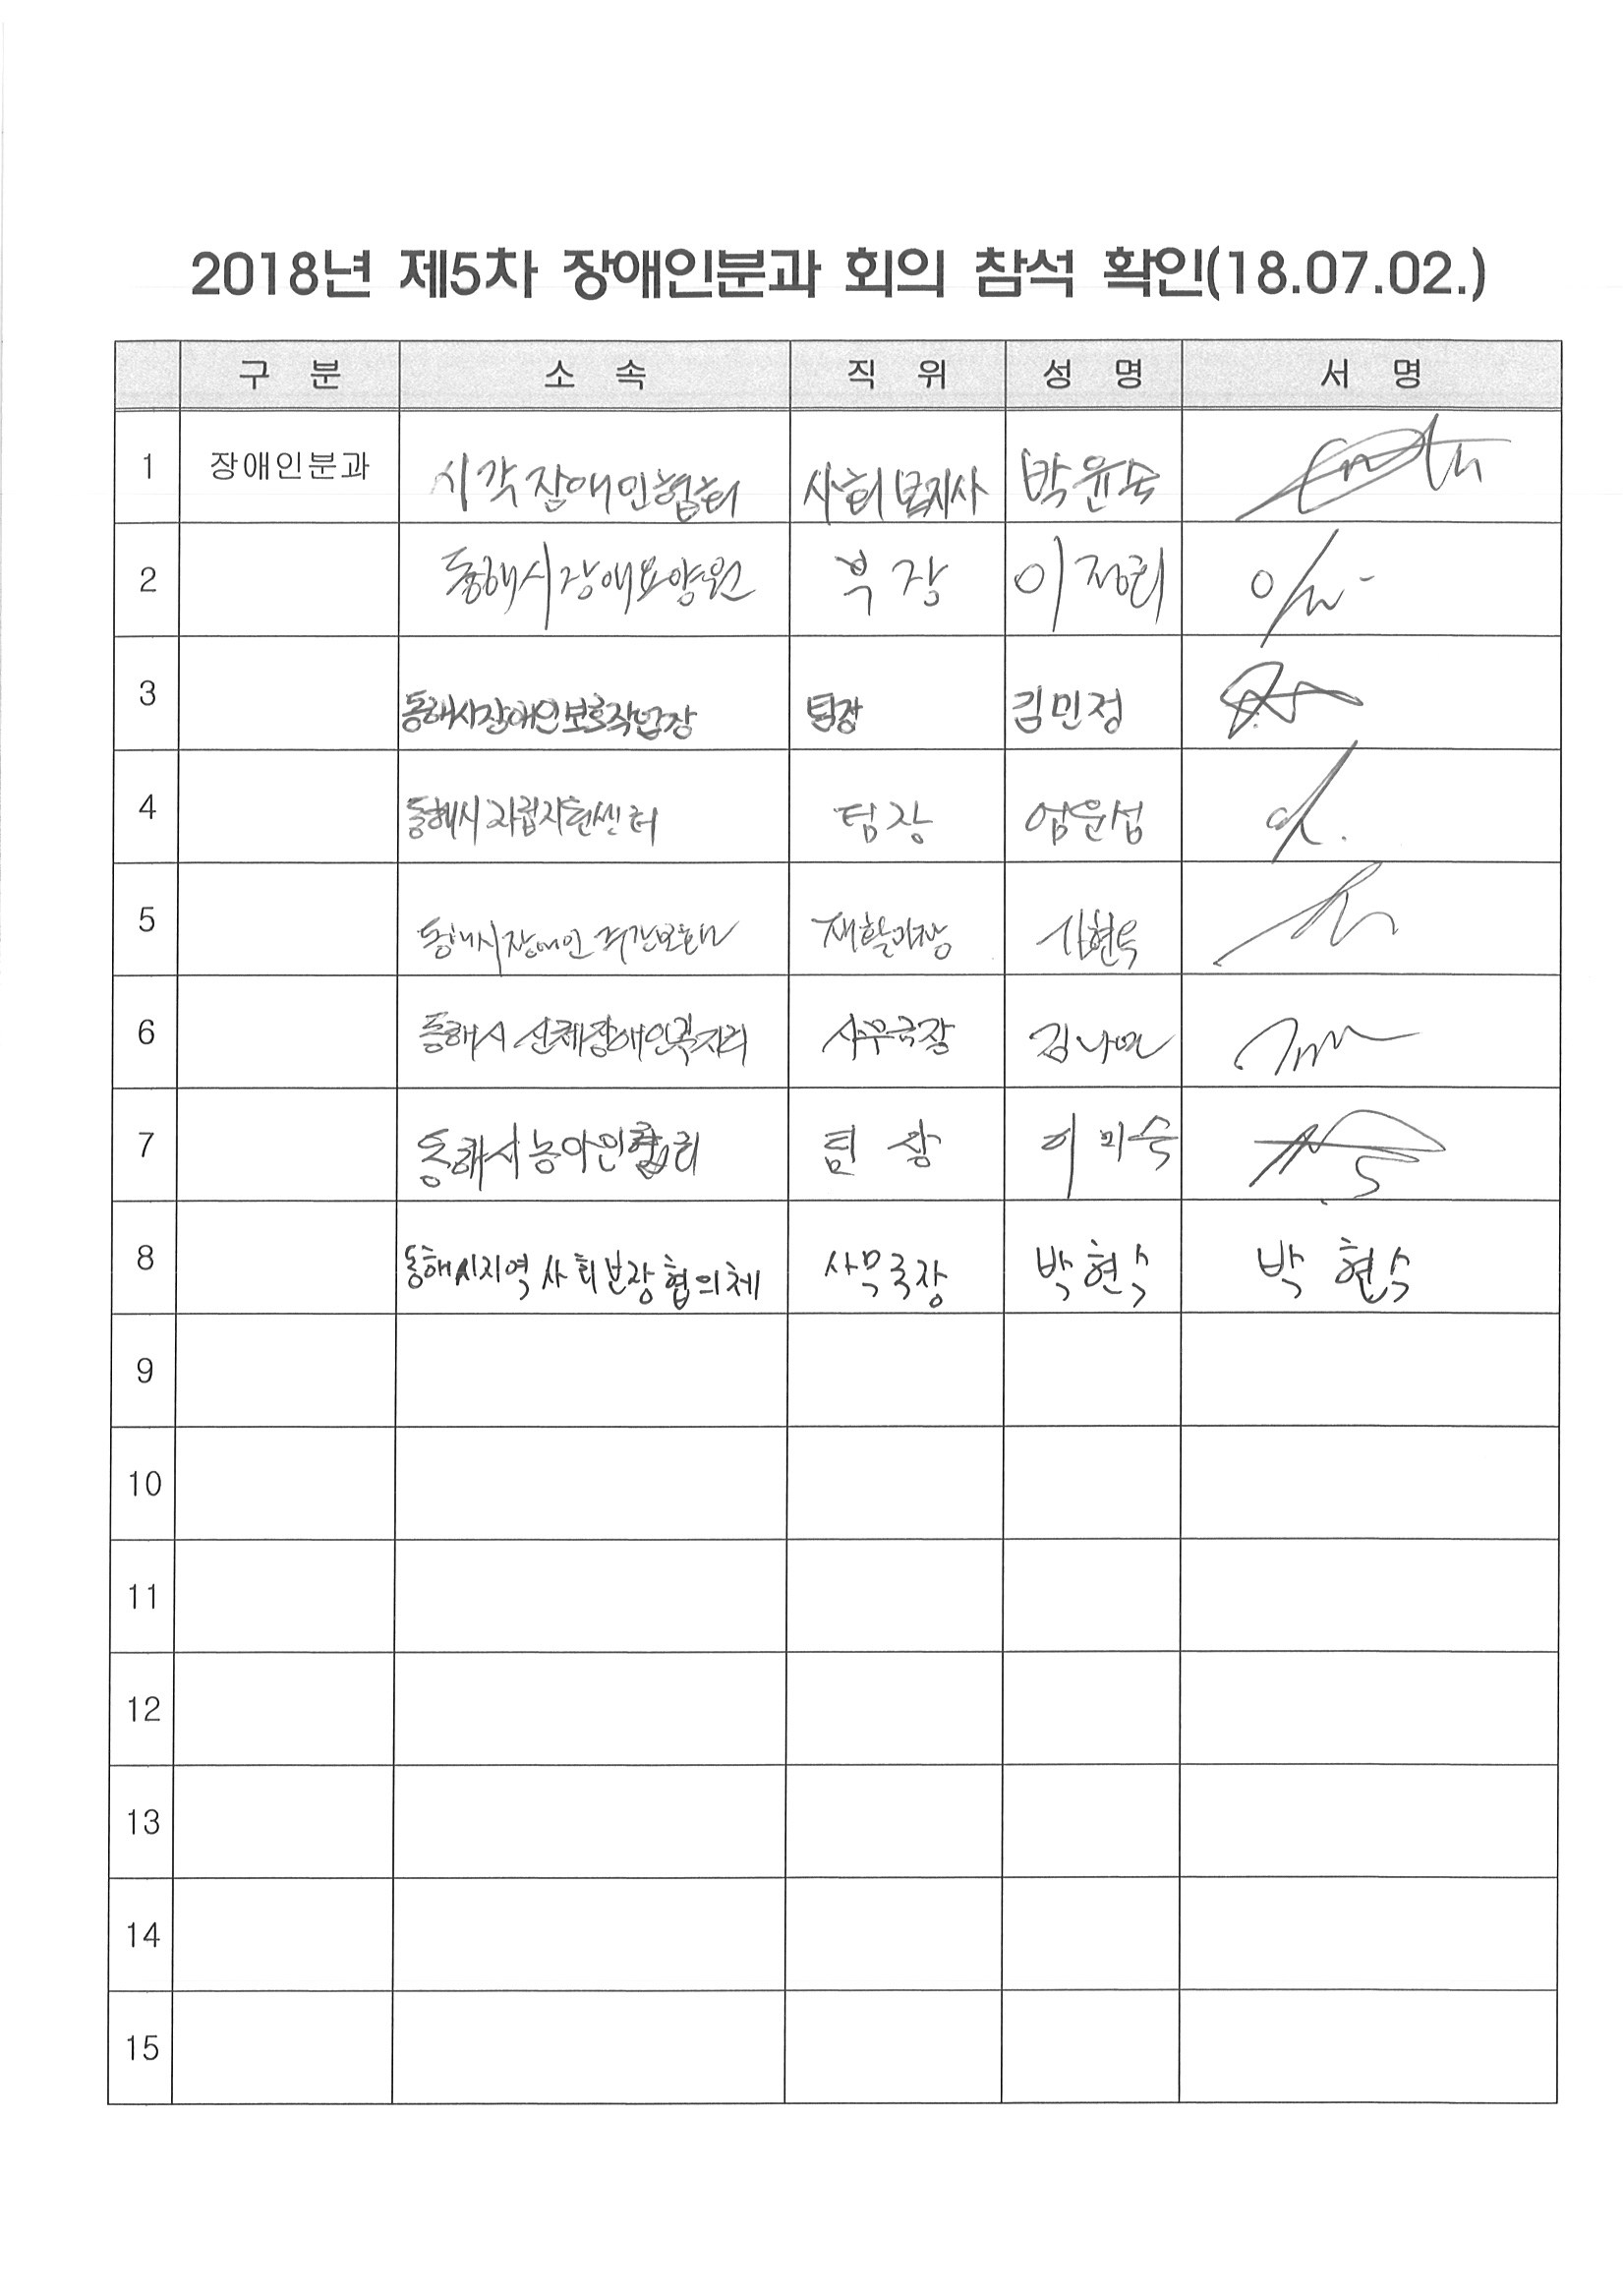 2018년 제5차 장애인분과 회의 참석 확인(18.07.02.)
구 분 소 속 직 위 성 명 서 명
1 장애인분과 시각장애인협회 사회복지사 박윤숙
2 동해시장애요양원 부장 이정희
3 동해시장애인보호작업장 팀장 김민정
4 동해시자립지원센터 팀장 엄윤섭
5 동해시장애인 재활과장
6 동해시 신체장애인복지회 사무국장 김나연
7 동해시농아인협회 팀장 이미숙
8 동해시지역사회보장협의체 사무국장 박현수 박현수
9
10
11
12
13
14
15